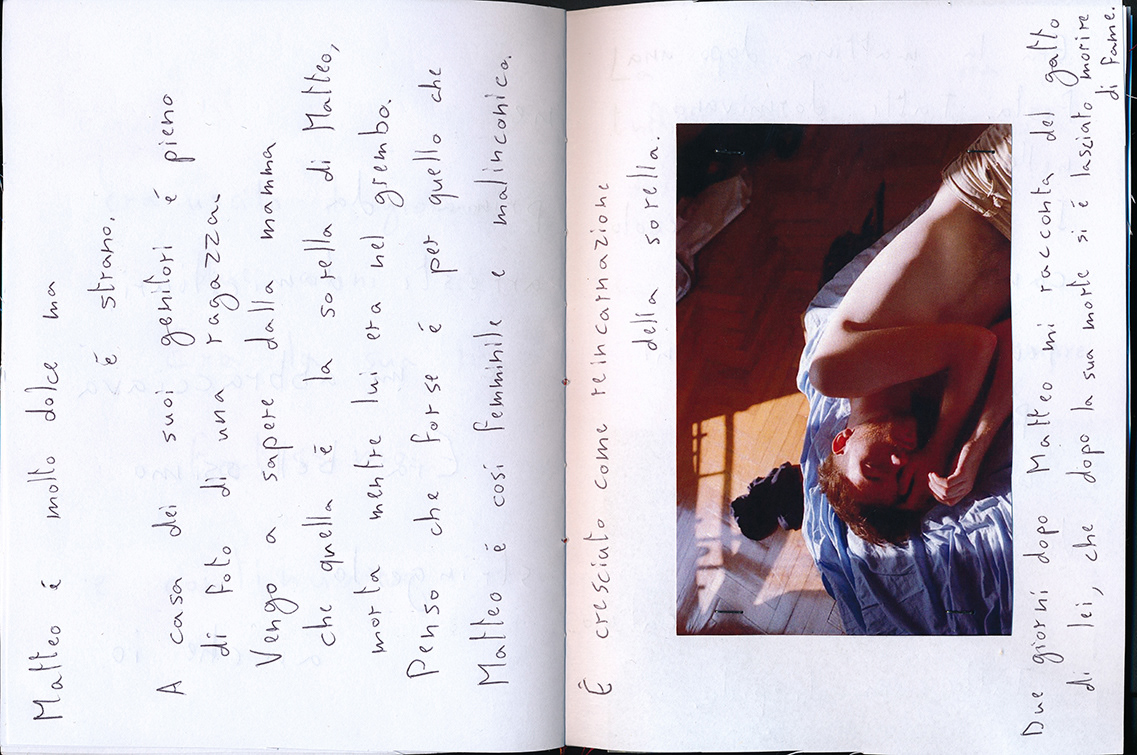 Matteo é molto dolce ma
é strano.
A casa dei suoi genitori é pieno
di foto di una ragazza.
Vengo a sapere dalla mamma
che quella é la sorella di Matteo,
morta mentre lui era nel grembo.
Penso che forse é per quello che
Matteo é cosí femminile e malinconico.
É cresciuto come reincarnazione
della sorella.
Due giorni dopo Matteo mi racconta del gatto
di lei, che dopo la sua morte si é lasciato morire
di fame.